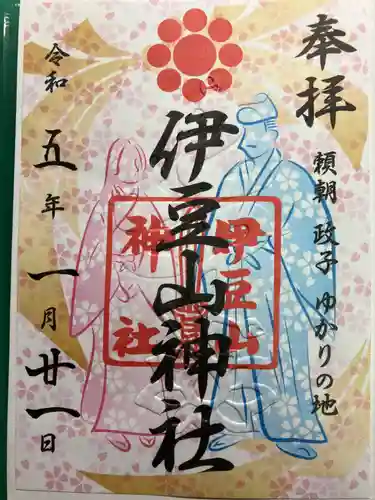 奉拝
頼朝 政子 ゆかりの地
伊豆山神社
伊豆山
神社
令和五年一月廿一日